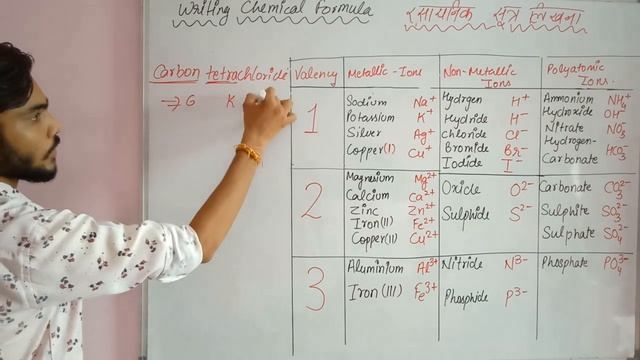 Writing Chemical Formula
रसायनिक सूत्र लिखना
Carbon tetrachloride
→ C K
Valency Metallic-Ions Non-Metallic Ions Polyatomic Ions.
1
Sodium Na⁺
Potassium K⁺
Silver Ag⁺
Copper(I) Cu⁺
Hydrgen H⁺
Hydride H⁻
Chloride Cl⁻
Bromide Br⁻
Iodide I⁻
Ammonium NH₄⁺
Hydroxide OH⁻
Nitrate NO₃⁻
Hydrogen-
Carbonate HCO₃⁻
2
Magnesium Mg²⁺
Calcium Ca²⁺
Zinc Zn²⁺
Iron(II) Fe²⁺
Copper(II) Cu²⁺
Oxide O²⁻
Sulphide S²⁻
Carbonate CO₃²⁻
Sulphite SO₃²⁻
Sulphate SO₄²⁻
3
Aluminium Al³⁺
Iron (III) Fe³⁺
Nitride N³⁻
Phosphide P³⁻
Phosphate PO₄³⁻